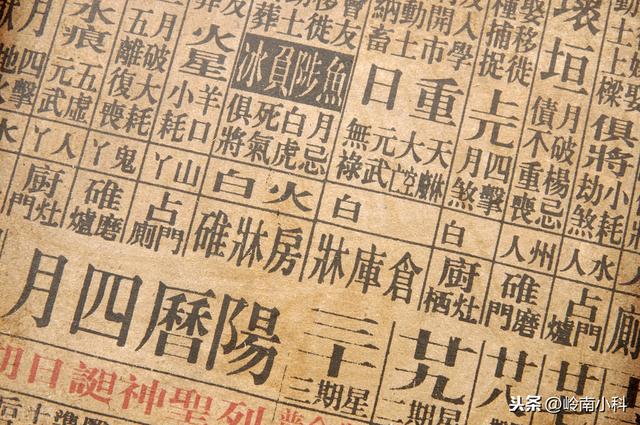 俱將
小耗
劫煞
水人
占門爐
壞垣
月破楊忌
債不重喪
州人
碓磨門
廿八
娶移徙
種捕捉
上元
四擊
月煞
白
廚灶栖
廿九
開市
人學
動土
納畜
重日
元武
無祿
白
倉庫牀
三十
星期三
移徙
魚陟負冰
月忌
白虎
死氣
俱將
火白
房牀碓
陽曆四月
火星
羊口
小耗
山丫
占門廁
月破大耗
五離復喪
鬼丫
碓磨爐
水痕
五虛
元武
人丫
廚灶門
月
四擊
水
列聖神誕日
头条 @岭南小科